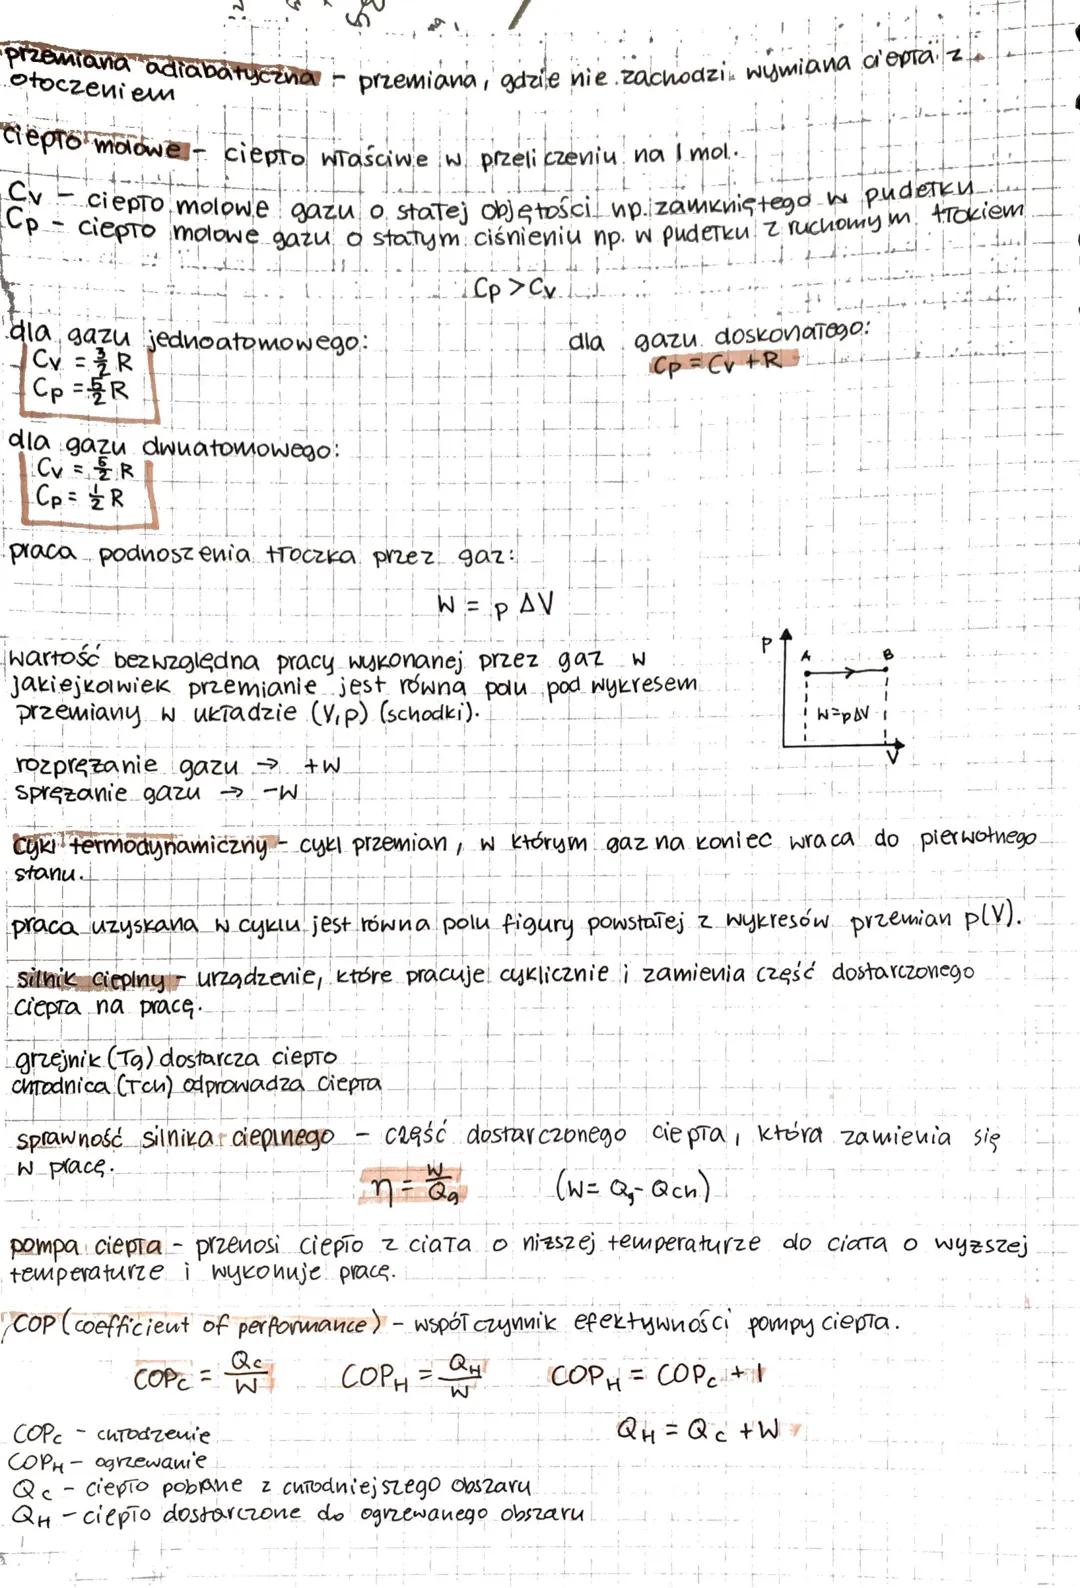 przemiana adiabatyczna - przemiana, gdzie nie zachodzi wymiana ciepła z
otoczeniem
ciepło molowe - ciepło właściwe w przeliczeniu na 1 mol.
Cv - ciepło molowe gazu o stałej objętości np. zamkniętego w pudełku
Cp - ciepło molowe gazu o stałym ciśnieniu np. w pudełku z ruchomym tłokiem
Cp > Cv
dla gazu jednoatomowego:
Cv = 3/2 R
Cp = 5/2 R
dla gazu doskonałego:
Cp = Cv + R
dla gazu dwuatomowego:
Cv = 5/2 R
Cp = 1/2 R
praca podnoszenia tłoczka przez gaz:
W = p ΔV
wartość bezwzględna pracy wykonanej przez gaz w
jakiejkolwiek przemianie jest równa polu pod wykresem
przemiany w układzie (V,p) (schodki).
P
A
B
W=pΔV
V
rozprężanie gazu → +W
sprężanie gazu → -W
cykl termodynamiczny - cykl przemian, w którym gaz na koniec wraca do pierwotnego
stanu.
praca uzyskana w cyklu jest równa polu figury powstałej z wykresów przemian p(V).
silnik cieplny - urządzenie, które pracuje cyklicznie i zamienia część dostarczonego
ciepła na pracę.
grzejnik (Tg) dostarcza ciepło
chłodnica (Tch) odprowadza ciepła
sprawność silnika cieplnego - część dostarczonego ciepła, która zamienia się
w pracę.
η = W/Qg (W = Qg - Qch)
pompa ciepła - przenosi ciepło z ciała o niższej temperaturze do ciała o wyższej
temperaturze i wykonuje pracę.
COP (coefficient of performance) - współczynnik efektywności pompy ciepła.
COPc = Qc/W COPH = QH/W COPH = COPc + 1
QH = Qc + W
COPc - chłodzenie
COPH - ogrzewanie
Qc - ciepło pobrane z chłodniejszego obszaru
QH - ciepło dostarczone do ogrzewanego obszaru